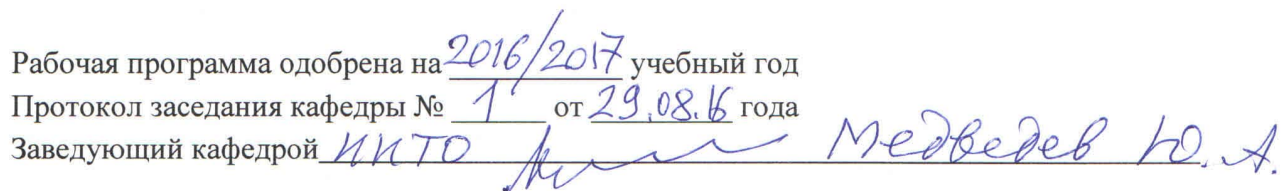 Рабочая программа одобрена на 2016/2017 учебный год
Протокол заседания кафедры № 1 от 29.08.16 года
Заведующий кафедрой ИИТО Медведев Ю. А.